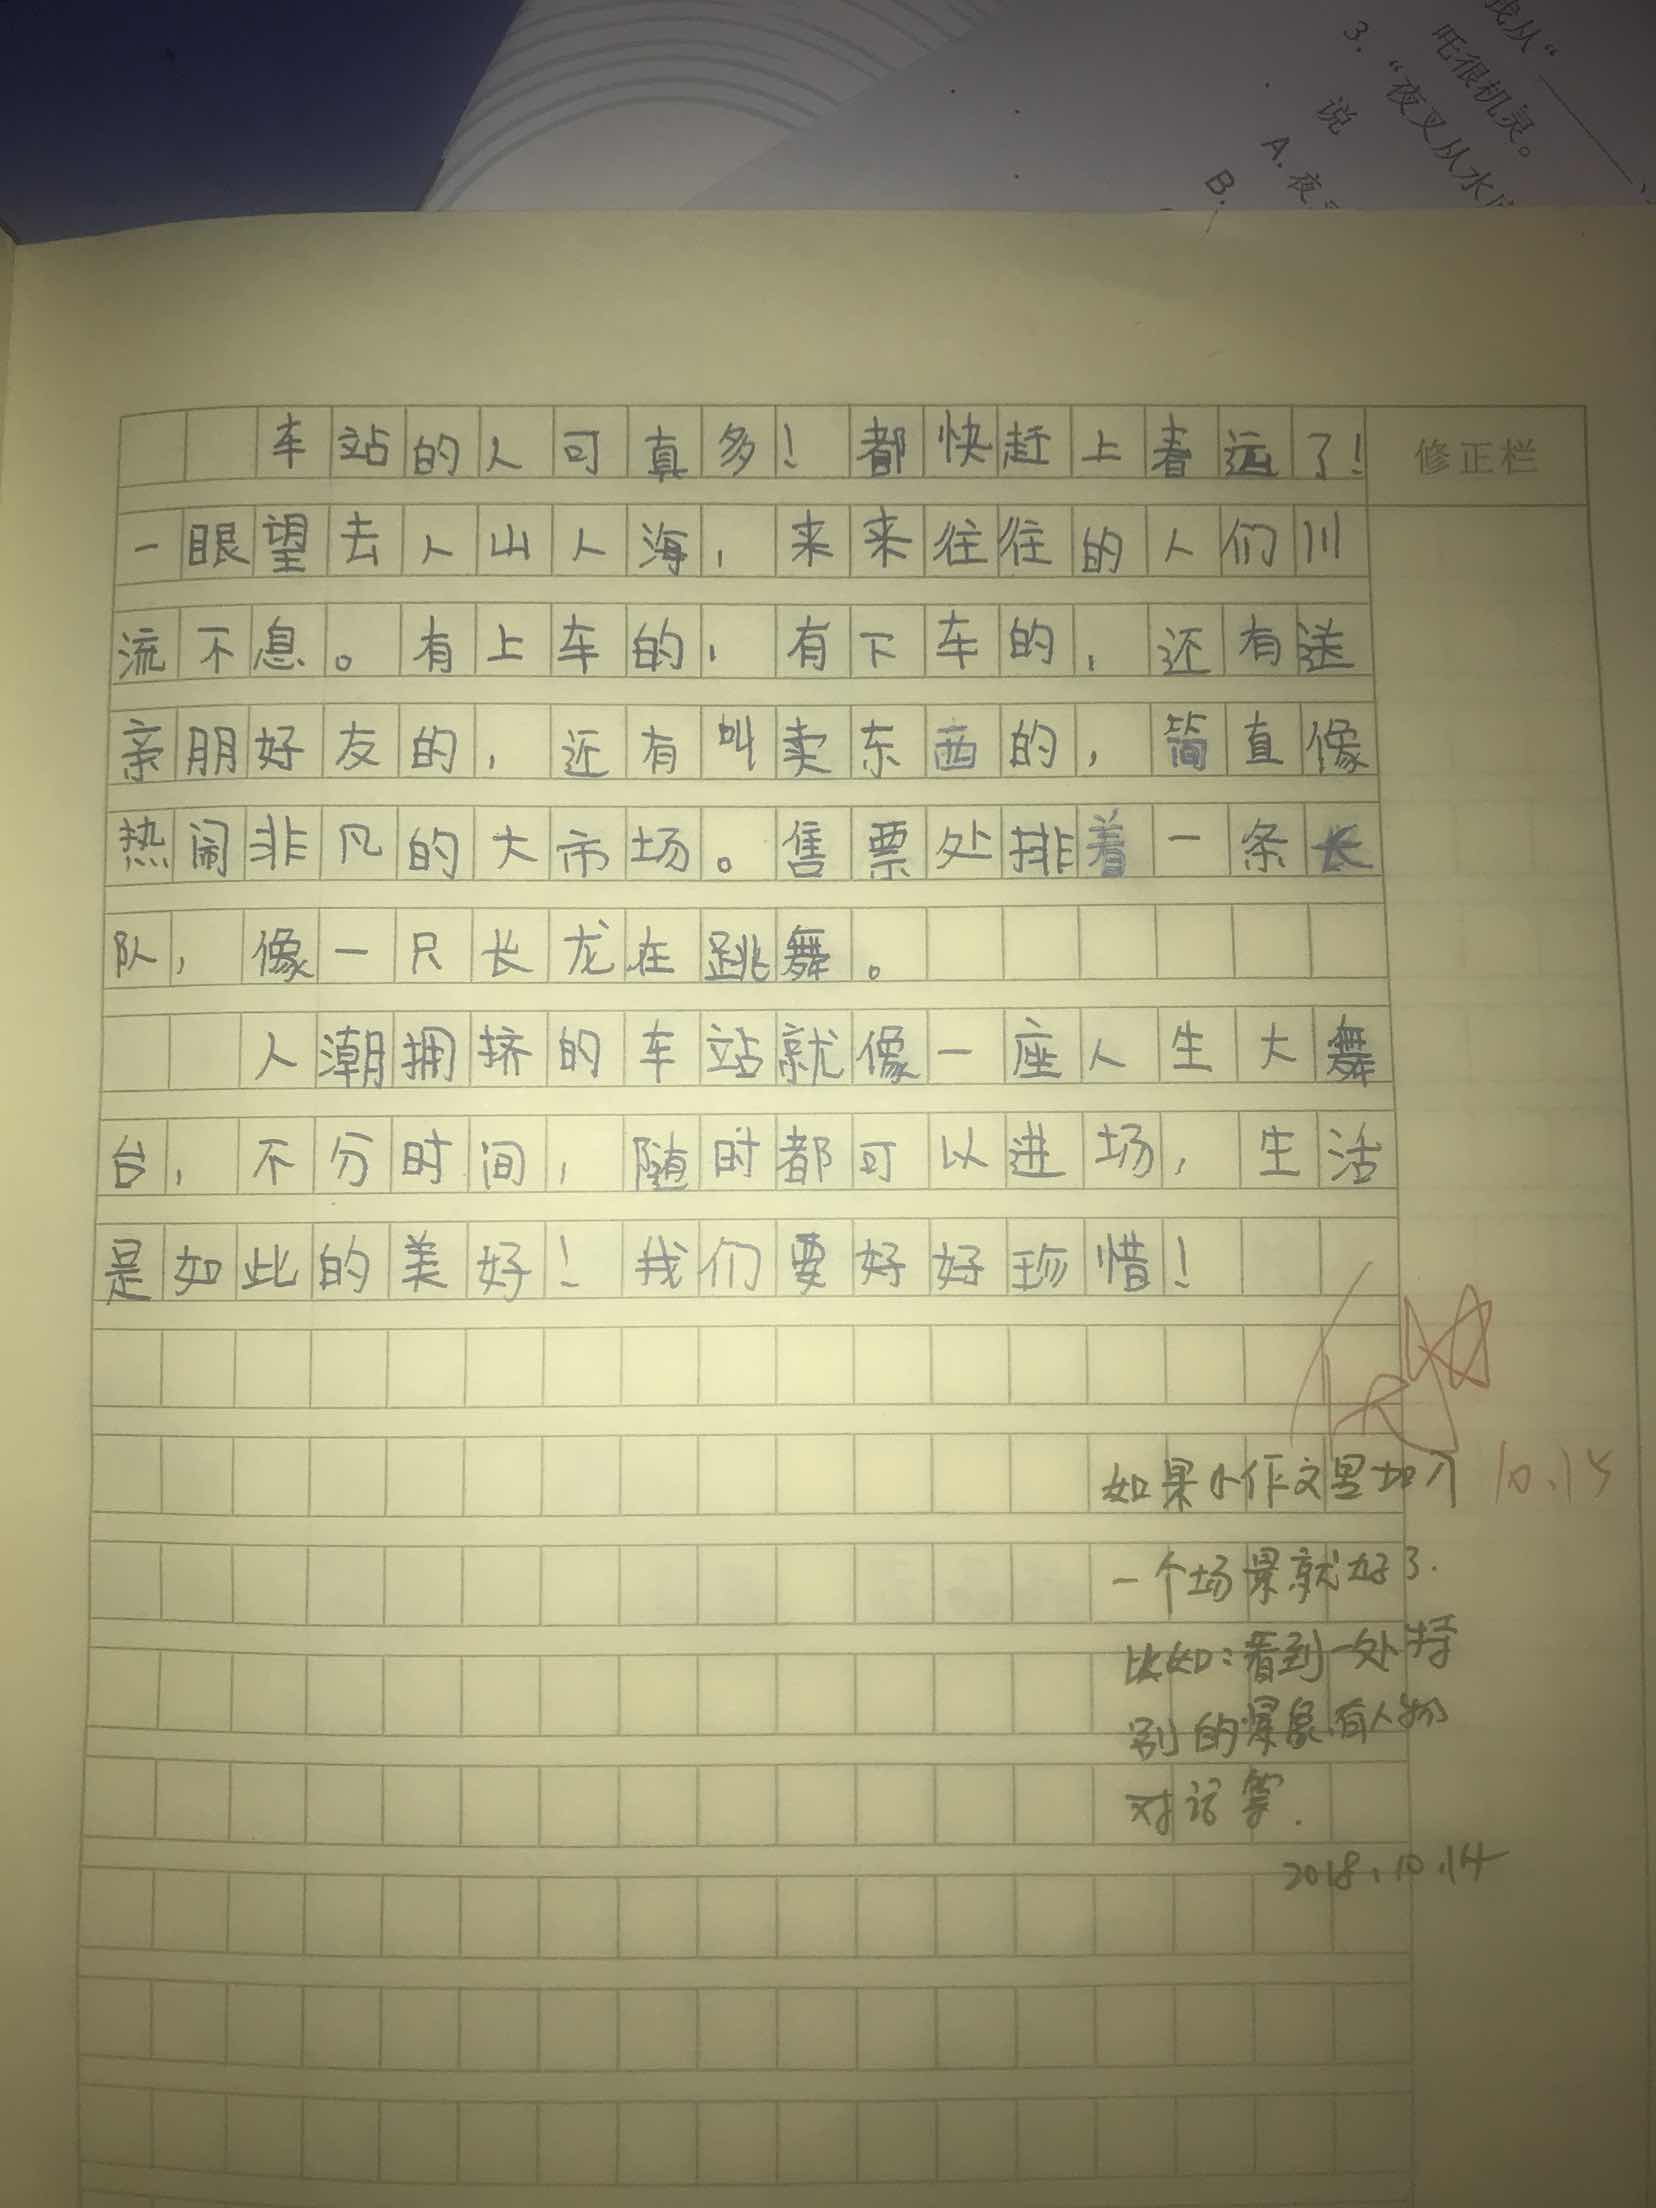 我从“
吒很机灵。
3. “夜叉从水
说
A. 夜
B.
车站的人可真多！都快赶上春运了！
修正栏
一眼望去人山人海，来来往往的人们川
流不息。有上车的，有下车的，还有送
亲朋好友的，还有叫卖东西的，简直像
热闹非凡的大市场。售票处排着一条长
队，像一只长龙在跳舞。
人潮拥挤的车站就像一座人生大舞
台，不分时间，随时都可以进场，生活
是如此的美好！我们要好好珍惜！
如果小作文里加入
10.15
一个场景就好了.
比如：看到一处特
别的景象,有人物
对话等.
2018.10.14